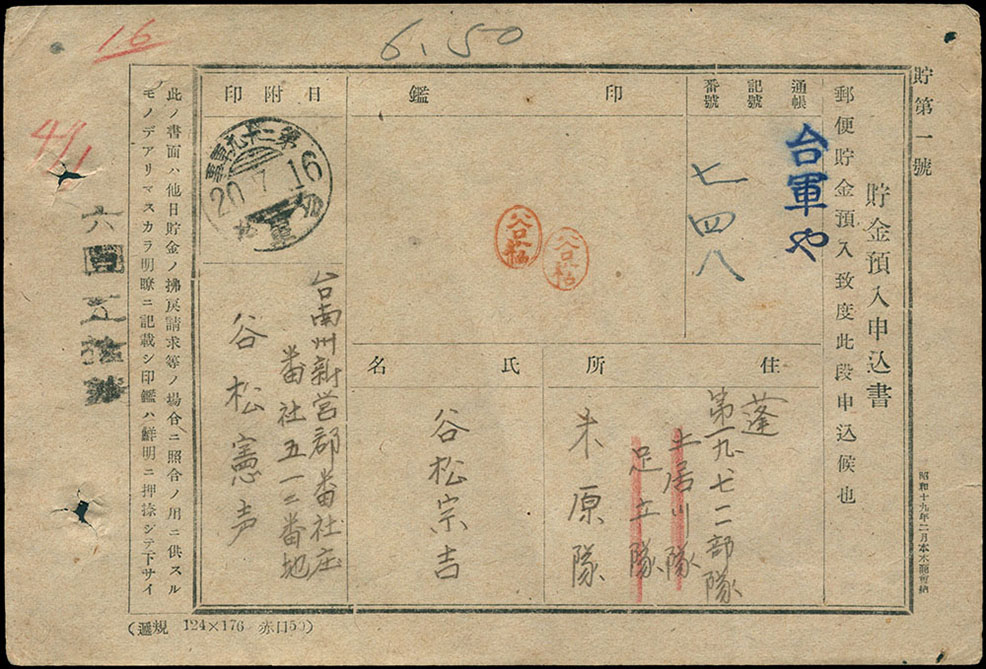 16
6.50
貯第一號
貯金預入申込書
郵便貯金預入致度此段申込候也
通帳
記號
番號
台軍や
七四八
印鑑
谷松
谷松
日附印
20 7 16
住所
蓬
第一九七二部隊
土居川隊
足立隊
米原隊
氏名
谷松宗吉
台南州新営郡番社庄
番社五一二番地
谷松憲声
此ノ書面ハ他日貯金ノ拂戻請求等ノ場合ニ照合ノ用ニ供スル
モノデアリマスカラ明瞭ニ記載シ印鑑ハ鮮明ニ押捺シテ下サイ
六圓五拾錢
(遞規 124×176 赤口50)